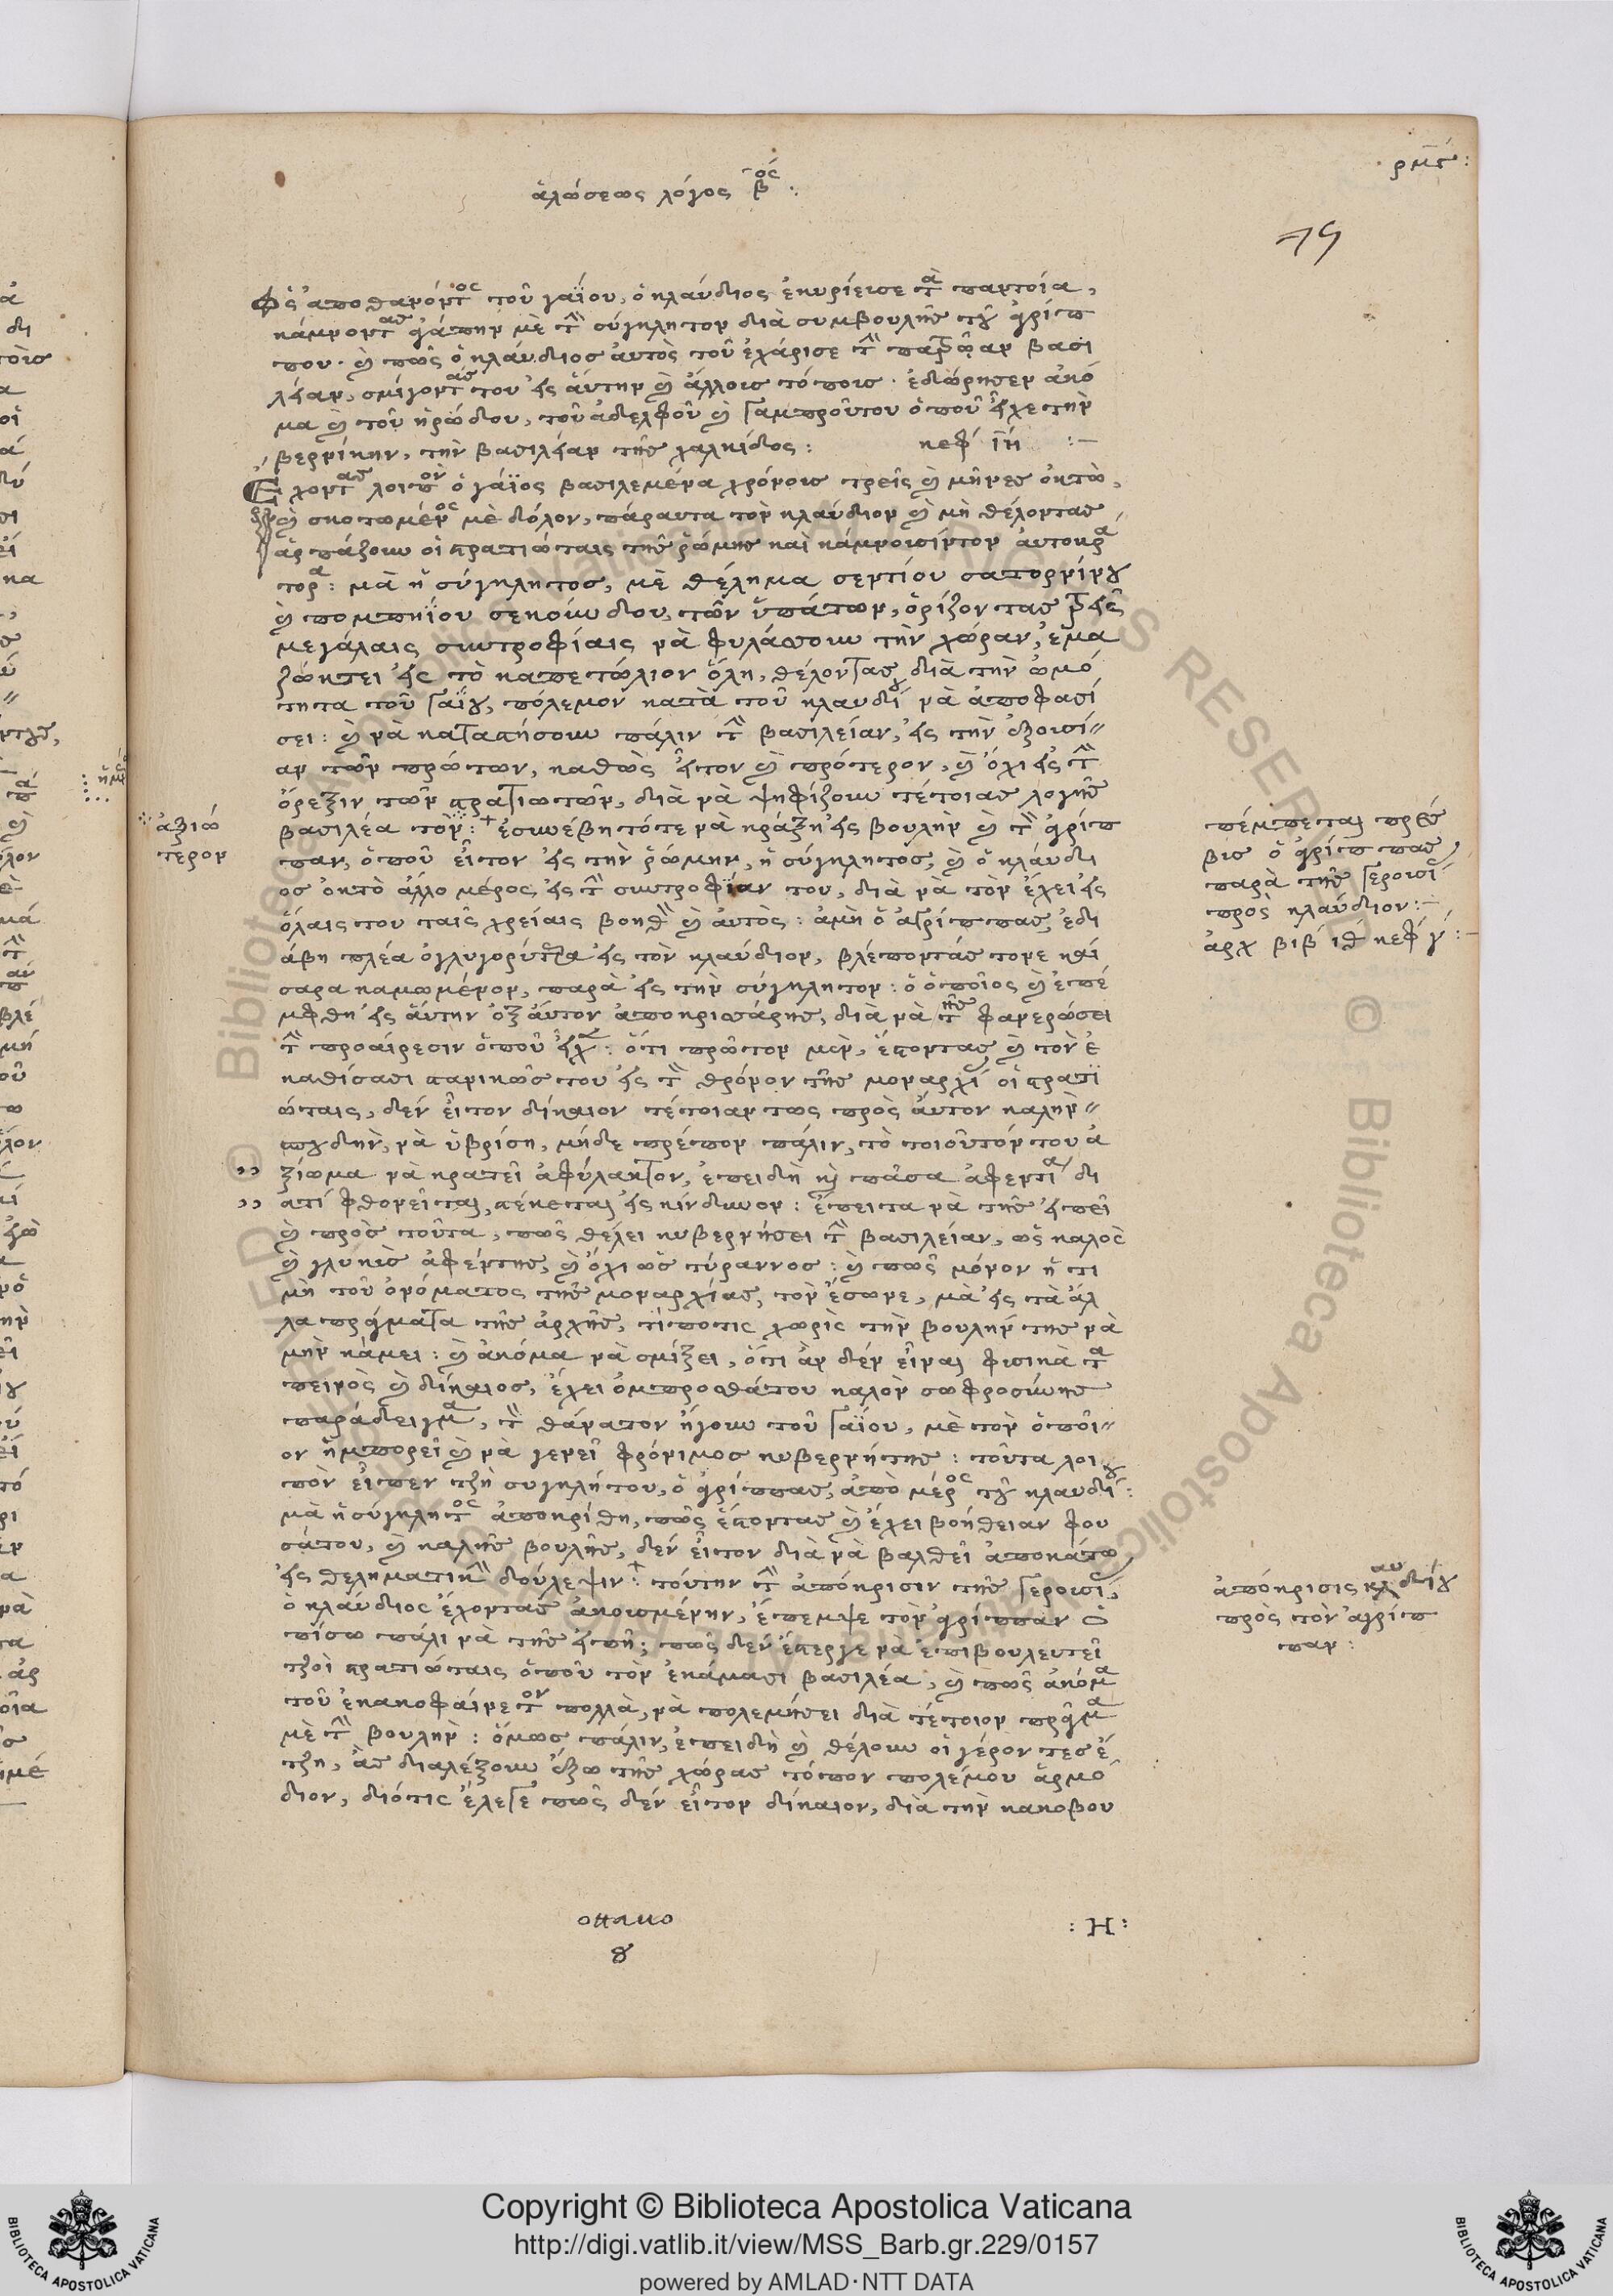 ρμϛ:
ἁλώσεως λόγος βος:
19
Ὡς ἀποθανόντος τοῦ γαΐου, ὁ κλαύδιος ἐκυρίευσε τὰ παντοία,
κάμνοντας ἀγάπην μὲ τὴν σύγκλητον διὰ συμβουλῆς τοῦ ἀγρίπ
που· καὶ πῶς ὁ κλαύδιος αὐτὸς τοῦ ἐχάρισε τὴν πατρῴαν βασι
λείαν, σμίγοντάς του εἰς αὐτὴν καὶ ἄλλους τόπους· ἐδώρησεν ἀκό
μα καὶ τοῦ ἡρώδου, τοῦ ἀδελφοῦ καὶ γαμπροῦ του ὁποῦ εἶχε τὴν
βερνίκην, τὴν βασιλείαν τῆς χαλκίδος: κεφ ιη :—
Ἔχοντας λοιπὸν ὁ γάϊος βασιλεμένα χρόνους τρεῖς καὶ μῆνες ὀκτὼ,
καὶ σκοτωμένος μὲ δόλον, πάραυτα τὸν κλαύδιον καὶ μὴ θέλοντας
ἁρπάζουν οἱ στρατιώταις τῆς ῥώμης καὶ κάμνουσίν τον αὐτοκρά
τορα: μὰ ἡ σύγκλητος, μὲ θέλημα σεντίου σατορνίνου
καὶ πομπηΐου σεκούνδου, τῶν ὑπάτων, ὁρίζοντας τρεῖς
μεγάλαις συντροφίαις νὰ φυλάσσουν τὴν χώραν, ἐμα
ζώκτει εἰς τὸ καπετώλιον ὅλη, θέλοντας διὰ τὴν ὠμό
τητα τοῦ γαΐου, πόλεμον κατὰ τοῦ κλαυδίου νὰ ἀποφασί
σει: καὶ νὰ καταστήσουν πάλιν τὴν βασιλείαν, εἰς τὴν ἐξουσί〃
αν τῶν πρώτων, καθὼς ἦτον καὶ πρότερον, καὶ ὄχι εἰς τὴν
ὄρεξιν τῶν στρατιωτῶν, διὰ νὰ ψηφίζουν τέτοιας λογῆς
βασιλέα τὸν: + ἐσυνέβη τότε νὰ κράξῃ εἰς βουλὴν καὶ τὸν ἀγρίπ
παν, ὁποῦ εἶτον εἰς τὴν ῥώμην, ἡ σύγκλητος, καὶ ὁ κλαύδι
ος ἀκτὸ ἄλλο μέρος εἰς τὴν συντροφίαν του, διὰ νὰ τὸν ἔχει εἰς
ὅλαις του ταῖς χρείαις βοηθὸν καὶ αὐτὸς: ἀμὴ ὁ ἀγρίππας, ἐδι
άβη πλέα ὀγλυγορύτερα εἰς τὸν κλαύδιον, βλέποντάς τονε καί
σαρα καμωμένον, παρὰ εἰς τὴν σύγκλητον: ὁ ὁποῖος καὶ ἐπέ
μφθη εἰς αὐτὴν ἐξ αὐτον ἀποκρισάρης, διὰ νὰ τῆς φανερώσει
τὴν προαίρεσιν ὁποῦ εἶχε: ὅτι πρῶτον μεν, ἔστοντας καὶ τον ἐ
καθίσασι στανικῶς του εἰς τὸν θρόνον τῆς μοναρχίας οἱ στρατι
ώταις, δεν εἶτον δίκαιον τέτοιαν τως πρὸς αὐτον καλὴν〃
σπουδὴν, νὰ ὑβρίση, μήδε πρέπον πάλιν, τὸ ποιοῦτόν του ἀ
ξίωμα νὰ κρατεῖ ἀφύλακτον, ἐπειδὴ καὶ πᾶσα ἀφεντία δι
ατί φθονεῖται, στέκεται εἰς κίνδυνον: ἔπειτα νὰ τῆς εἰπεῖ
καὶ πρὸς τοῦτα, πῶς θέλει κυβερνήσει τὴν βασιλείαν, ὡς καλὸς
καὶ γλυκὶς ἀφέντης, καὶ ὄχι ὡς τύραννος: καὶ πῶς μόνον ἡ τι
μὴ τοῦ ὀνόματος τῆς μοναρχίας, τον ἔσωνε, μὰ εἰς τὰ ἄλ
λα πράγματα τῆς ἀρχῆς, τίποτις χωρὶς τὴν βουλήν της νὰ
μὴν κάμει: καὶ ἀκόμα νὰ σμίξει, ὅτι ἂν δέν εἶναι φισικὰ τα
πεινὸς καὶ δίκαιος, ἔχει ὀμπροστά του καλὸν σωφροσύνης
παράδειγμα, τὸν θάνατον ἤγουν τοῦ γαΐου, μὲ τὸν ὁποῖ〃
ον ἠμπορεῖ καὶ νὰ γενεῖ φρόνιμος κυβερνήτης: τοῦτα λοι
πὸν εἶπεν τζὴ συγκλήτου, ὁ ἀγρίππας, ἀπὸ μέρος τοῦ κλαυδίου:
μὰ ἡ σύγκλητος ἀποκρίθη, πῶς ἔστοντας καὶ ἔχει βοήθειαν φου
σάτου, καὶ καλῆς βουλῆς, δέν εἶτον διὰ νὰ βαλθεῖ ἀποκάτω
εἰς θεληματικὴν δούλεψιν: + τούτην τὴν ἀπόκρισιν τῆς γερουσίας,
ὁ κλαύδιος ἔχοντας ἀκουσμένην, ἔπεμψε τὸν ἀγρίππαν ὀ
πίσω πάλι νὰ τῆς εἰπῆ; πῶς δέν ἔστεργε νὰ ἐπιβουλευτεῖ
τζοὶ στρατιώταις ὁποῦ τὸν ἐκάμασι βασιλέα, καὶ πῶς ἀκόμα
τοῦ ἐκακοφαίνετον πολλὰ, νὰ πολεμήσει διὰ τέτοιον πρᾶγμα
μὲ τὴν βουλὴν: ὅμως πάλιν, ἐπειδὴ καὶ θέλουν οἱ γέροντες ἔ
τζη, ἂς διαλέξουν ἔξω τῆς χώρας τόπον πολέμου ἁρμό
διον, διότις ἔλεγε πῶς δέν εἶτον δίκαιον, διὰ τὴν κακοβου
ἀξιώ
τερον
πέμπεται πρέσ
βις ὁ ἀγρίππας,
παρὰ τῆς γερουσίας
πρὸς κλαύδιον:—
ἀρχ βιβ ιθ κεφ γ:—
ἀπόκρισις κλαυδίου
πρὸς τὸν ἀγρίπ
παν:
ottauo
8
:Η:
Copyright © Biblioteca Apostolica Vaticana
http://digi.vatlib.it/view/MSS_Barb.gr.229/0157
powered by AMLAD·NTT DATA